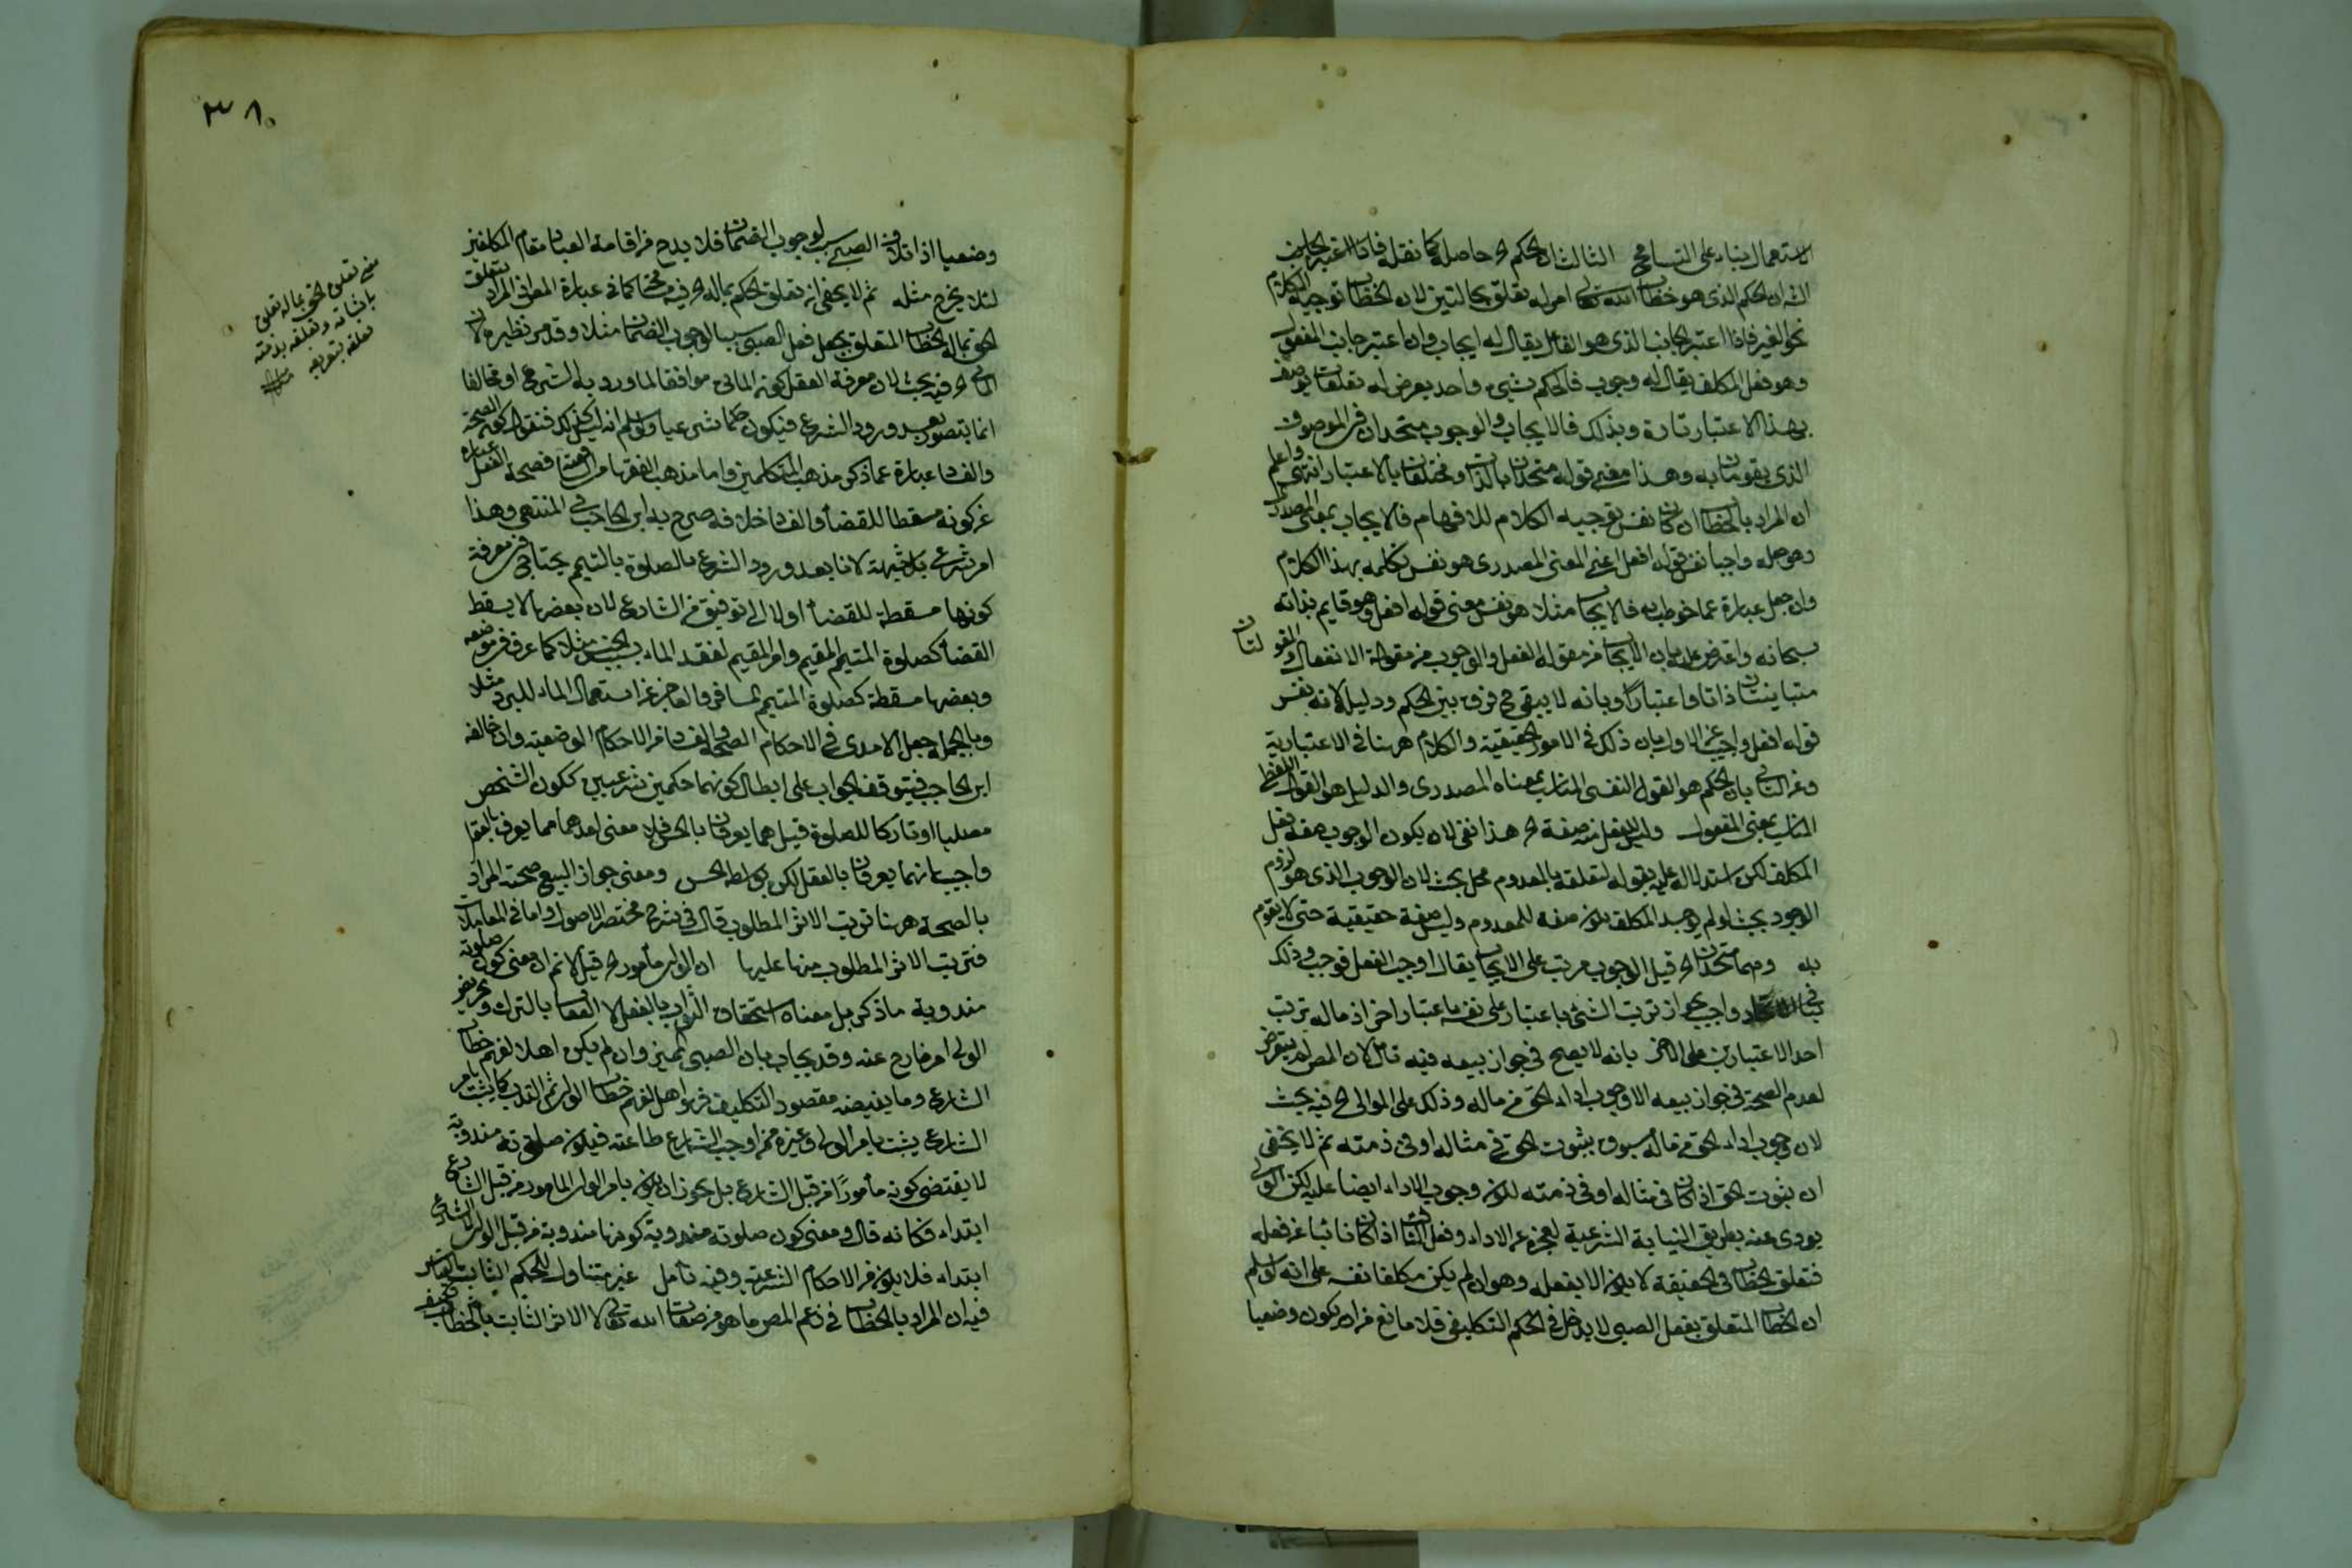 الاستعمال بناء على التسامح الثالث ان الحكم اه حاصله كما نقله فاذا اعتبر الجانب
ان الحكم الذي هو خطاب الله تعالى امر له تعلق بجانبين لان الخطاب توجيه الكلام
نحو الغير فاذا اعتبر الجانب الذي هو الفاعل يقال له ايجاب وان اعتبر جانب المفعول
وهو فعل المكلف يقال له وجوب فالحكم شيء واحد يعرض له تعلقات يوصف
بهذا الاعتبار تارة وبذلك فالايجاب والوجوب متحدان في الموصوف
الذي يقومان به وهذا معنى قوله متحدان بالذات ومختلفان بالاعتبار انتهى واعلم
ان المراد بالخطاب ان كان نفس توجيه الكلام للافهام فالايجاب بمعنى المصدر
وهو جعله واجبا نفس قوله افعل اعني المعنى المصدري هو نفس تكلمه بهذا الكلام
وان جعل عبارة عما خوطب به فالايجاب مثلا هو نفس معنى قوله افعل وهو قايم بذاته
سبحانه واعترض عليه بان الايجاب من مقولة الفعل والوجوب من مقولة الانفعال والمقولتان
متباينتان ذاتا واعتبارا وبانه لا يبقى ح فرق بين الحكم ودليله لانه نفس
قوله افعل واجيب عن الاول بان ذلك في الامور الحقيقية والكلام ههنا في الاعتبارية
وعن الثاني بان الحكم هو القول النفسي بمعناه المصدري والدليل هو القول اللفظي
بمعنى المفعول وليس للفعل منه صفة اه هذا نفي لان يكون الوجوب صفة فعل
المكلف لكن استدلاله عليه بقوله لتعلقه بالمعدوم محل بحث لان الوجوب الذي هو لزوم
الوجود بحيث لو لم يوجد المكلف يكون صفة للمعدوم وليس صفة حقيقية حتى لا يقوم
به وهما متحدان اه قيل الوجوب مرتب على الايجاب يقال اوجب الفعل فوجب وذلك
ينافي الاتحاد واجيب بجواز ترتب الشيء باعتبار على نفسه باعتبار اخر اذ ماله ترتب
احد الاعتبارين على الاخر بانه لا يصح في جواز بيعه فيه تأمل لان المص لم يتعرض
لعدم الصحة في جواز بيعه الا وجوب اداء الحق من ماله وذلك على الولي اه فيه بحث
لان وجوب اداء الحق من ماله مسبوق بثبوت الحق في ماله او في ذمته ثم لا يخفى
ان ثبوت الحق اذا كان في ماله او في ذمته يكون وجوب الاداء ايضا عليه لكن الولي
يودي عنه بطريق النيابة الشرعية لعجزه عن الاداء وفعل النائب اذا كان نائبا عن فعله
فتعلق الخطاب في الحقيقة لا يكون الا بفعله وهو ان لم يكن مكلفا نفسه على انه لو سلم
ان الخطاب المتعلق بفعل الصبي لا يدخل في الحكم التكليفي فلا مانع من ان يكون وضعيا
٣٨٠
وضعيا اذ اتلاف الصبي سبب لوجوب الضمان فلا بد من اقامة العباد مقام المكلفين
لئلا يخرج مثله ثم لا يخفى ان تعلق الحكم بماله اه فيه كما في عبارة المص اذ المراد بتعلق
الحق بماله الخطاب المتعلق بجعل فعل الصبي سببا لوجوب الضمان مثلا وقد مر نظيره لان
اه فيه بحث لان معرفة العقل كونه موافقا لما ورد به الشرع او مخالفا
انما يتصور بعد ورود الشرع فيكون حكما شرعيا ولو سلم انه ليس كذلك فنقول كون الصحة
والفساد عبارة عما ذكر مذهب المتكلمين واما مذهب الفقهاء فصحة الفعل عبارة
عن كونه مسقطا للقضاء والفساد خلافه صرح به ابن الحاجب في المنتهى وهذا
امر شرعي بلا شبهة لانا بعد ورود الشرع بالصلوة بالتيمم يحتاج في معرفة
كونها مسقطة للقضاء اولا الى توقيف من الشارع لان بعضها لا يسقط
القضاء كصلوة المتيمم المقيم لفقد الماء مثلا كما عرف في موضعه
وبعضها مسقطة كصلوة المتيمم المسافر والعاجز عن استعمال الماء للبرد مثلا
وبالجملة جعل الامدي في الاحكام الصحة والفساد من الاحكام الوضعية وان خالفه
ابن الحاجب فيتوقف الجواب على ابطال كونهما حكمين شرعيين ككون الشخص
مصليا او تاركا للصلوة قيل هما يعرفان بالحس فلا معنى لعدهما مما يعرف بالعقل
واجيب بانهما يعرفان بالعقل لكن بواسطة الحس ومعنى جواز البيع صحته المراد
بالصحة ههنا ترتب الاثر المطلوب قال في شرح مختصر الاصول واما في المعاملات
فترتب الاثر المطلوب منها عليها ان الولي مأمور اه قيل لا نم ان معنى كون صلوته
مندوبة ما ذكر بل معناه استحقاق الثواب بالفعل لا العقاب بالترك وتحريض
الولي امر خارج عنه وقد يجاب بان الصبي المميز وان لم يكن اهلا لفهم خطاب
الشارع وما يفيضه مقصود التكليف فهو اهل لفهم خطاب الولي ثم الندب كما يثبت بامر
الشارع يثبت بامر الولي وغيره ممن اوجب الشارع طاعته فيكون صلوته مندوبة
لا يقتضي كونه مأمورا من قبل الشارع بل يجوز ان يكون بامر الولي المامور من قبل الشارع
ابتداء فكانه قال ومعنى كون صلوته مندوبة كونها مندوبة من قبل الولي لا الشارع
ابتداء فلا يكون من الاحكام الشرعية وفيه تأمل غير متناول للحكم الثابت بالقياس
فيه ان المراد بالخطاب في زعم المص ما هو من صفات الله تعالى لا الاثر الثابت بالخطاب
معنى تعلق الحق بماله تعلق
باثباته وتعلقه بذمته
تعلقه بتفريغه